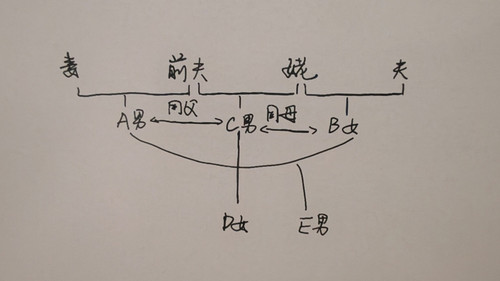 妻 前夫 姥 夫
A男 同父 C男 同母 B女
D女 E男